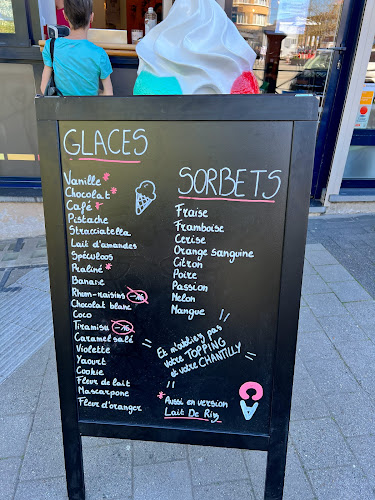 GLACES
Vanille *
Chocolat *
Café *
Pistache
Stracciatella
Lait d'amandes
Spéculoos
Praliné *
Banane
Rhum-raisins -16
Chocolat blanc
Coco
Tiramisu -16
Caramel salé
Violette
Yaourt
Cookie
Fleur de lait
Mascarpone
Fleur d'oranger
SORBETS
Fraise
Framboise
Cerise
Orange sanguine
Citron
Poire
Passion
Melon
Mangue
Et n'oubliez pas
votre TOPPING
et votre CHANTILLY
* Aussi en version
Lait De Riz